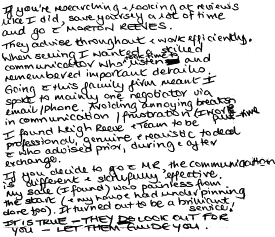 If you're researching + looking at reviews
like I did, save yourself a lot of time
and go c̄ MARTON REEVES.
They advise throughout + work efficiently.
When selling I wanted a skilled
communicator who listened and
remembered important details.
Going c̄ this family firm meant I
spoke to mainly one negotiator via
email/phone. Avoiding annoying breaks
in communication / frustration
I found Leigh Reeve + team to be
professional, genuine + realistic to deal
c̄ who advised prior, during + after
exchange.
If you decide to go c̄ MR, the communication
is different + skilfully, effective.
My sale (I found) was painless from
the start (+ my house had underpinning
done too). It turned out to be a brilliant
service!
IT IS TRUE - THEY DO LOOK OUT FOR
YOU - LET THEM GUIDE YOU.